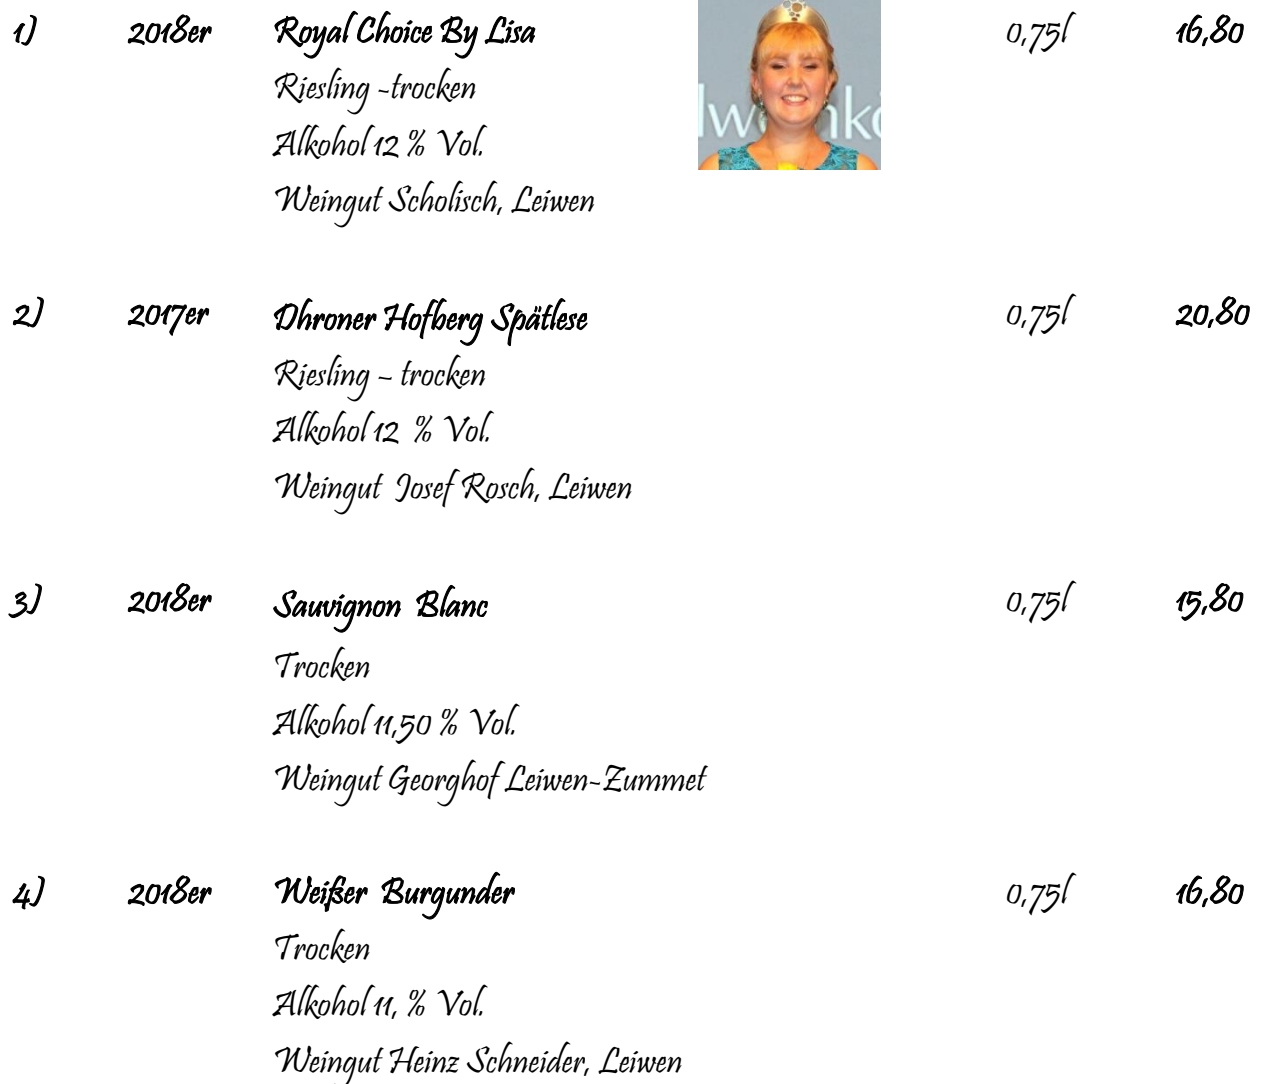 1) 2018er Royal Choice By Lisa 0,75l 16,80
Riesling -trocken
Alkohol 12 % Vol.
Weingut Scholisch, Leiwen
lwe nkö
2) 2017er Dhroner Hofberg Spätlese 0,75l 20,80
Riesling – trocken
Alkohol 12 % Vol.
Weingut Josef Rosch, Leiwen
3) 2018er Sauvignon Blanc 0,75l 15,80
Trocken
Alkohol 11,50 % Vol.
Weingut Georghof Leiwen-Zummet
4) 2018er Weißer Burgunder 0,75l 16,80
Trocken
Alkohol 11, % Vol.
Weingut Heinz Schneider, Leiwen